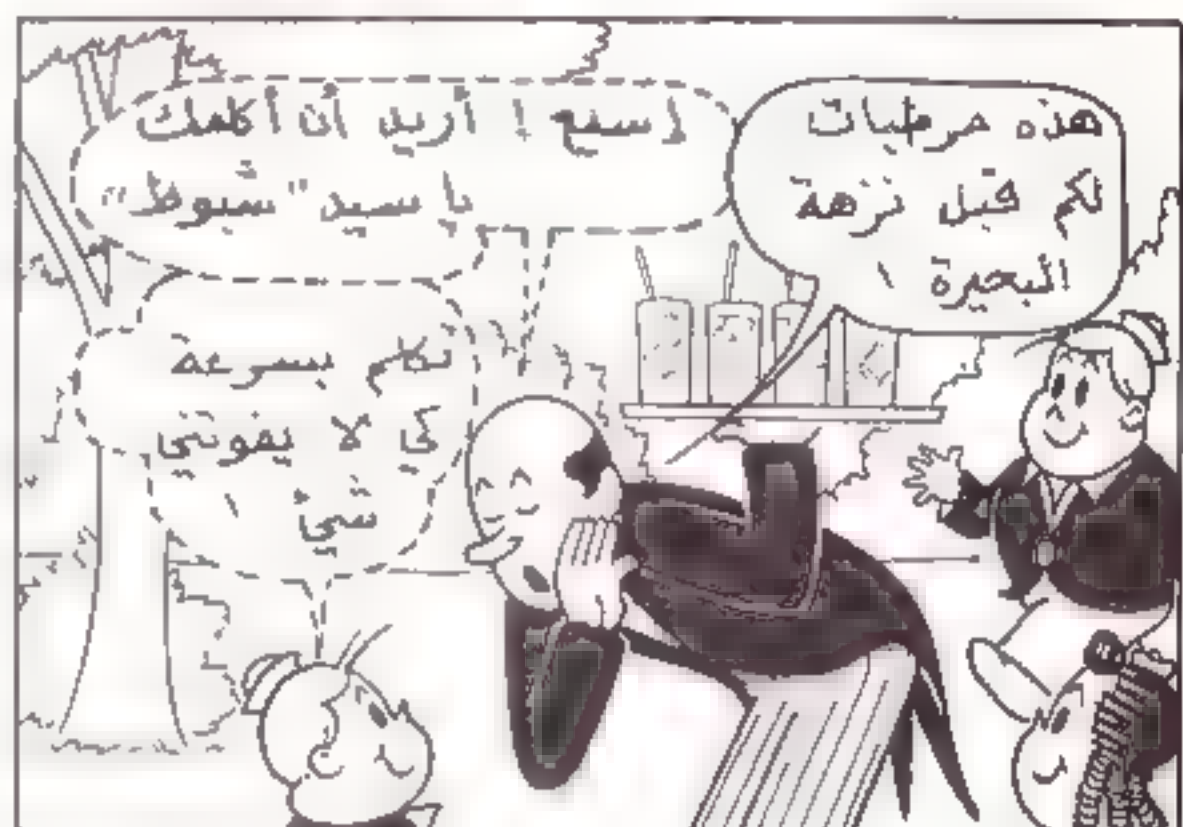 هذه مرطبات
لكم قبل نزهة
البحيرة !
إسمع ! أريد أن أكلمك
يا سيد "شبوط"
تكلم بسرعة
كي لا يفوتني
شيئ !